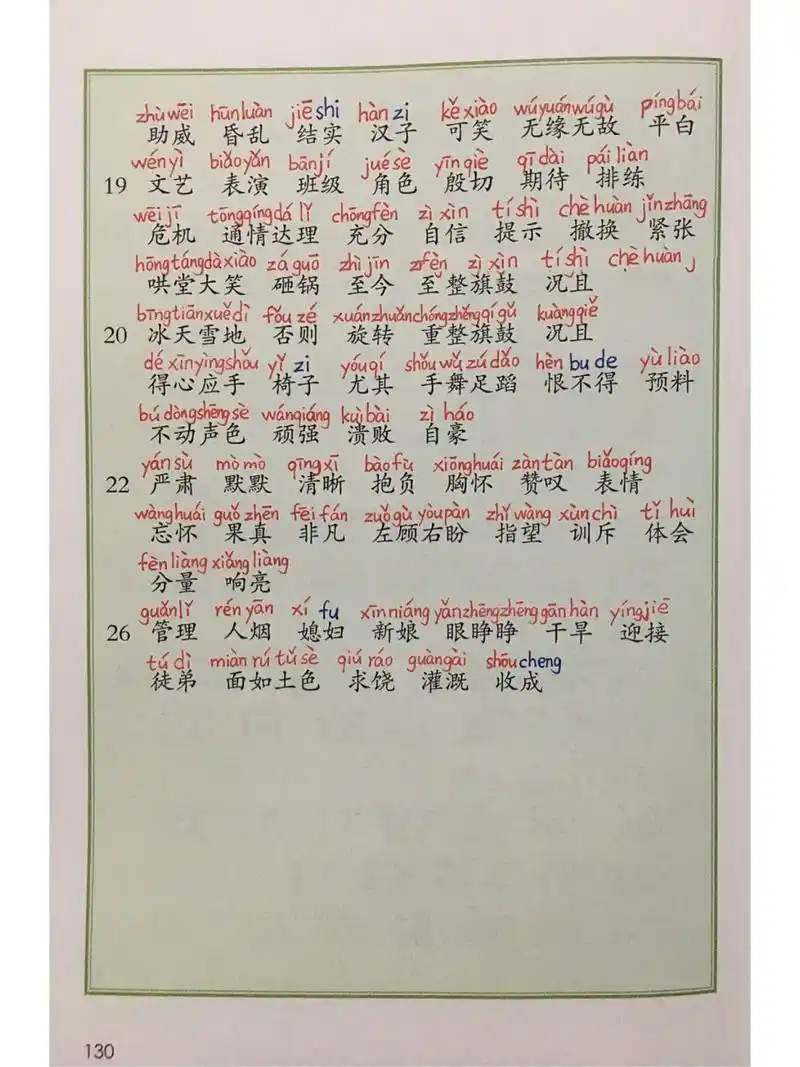 zhùwēi hūnluàn jiēshi hànzi kěxiào wúyuánwúgù píngbái
助威 昏乱 结实 汉子 可笑 无缘无故 平白
wényì biǎoyǎn bānjí juésè yīnqiè qīdài páiliàn
19 文艺 表演 班级 角色 殷切 期待 排练
wēijī tōngqíngdálǐ chōngfèn zìxìn tíshì chèhuàn jǐnzhāng
危机 通情达理 充分 自信 提示 撤换 紧张
hōngtángdàxiào záguō zhìjīn zìxìn tíshì chèhuàn
哄堂大笑 砸锅 至今 至整旗鼓 况且
bīngtiānxuědì fǒuzé xuánzhuǎnchóngzhěngqígǔ kuàngqiě
20 冰天雪地 否则 旋转 重整旗鼓 况且
déxīnyìngshǒu yǐzi yóuqí shǒuwǔzúdǎo hènbude yùliào
得心应手 椅子 尤其 手舞足蹈 恨不得 预料
búdòngshēngsè wánqiáng kuìbài zìháo
不动声色 顽强 溃败 自豪
yánsù mòmò qīngxī bàofù xiōnghuái zàntàn biǎoqíng
22 严肃 默默 清晰 抱负 胸怀 赞叹 表情
wànghuái guǒzhēn fēifán zuǒgùyòupàn zhǐwàng xùnchì tǐhuì
忘怀 果真 非凡 左顾右盼 指望 训斥 体会
fènliàng xiǎngliàng
分量 响亮
guǎnlǐ rényān xífu xīnniáng yǎnzhēngzhēng gānhàn yíngjiē
26 管理 人烟 媳妇 新娘 眼睁睁 干旱 迎接
túdì miànrútǔsè qiúráo guàngài shōucheng
徒弟 面如土色 求饶 灌溉 收成
130